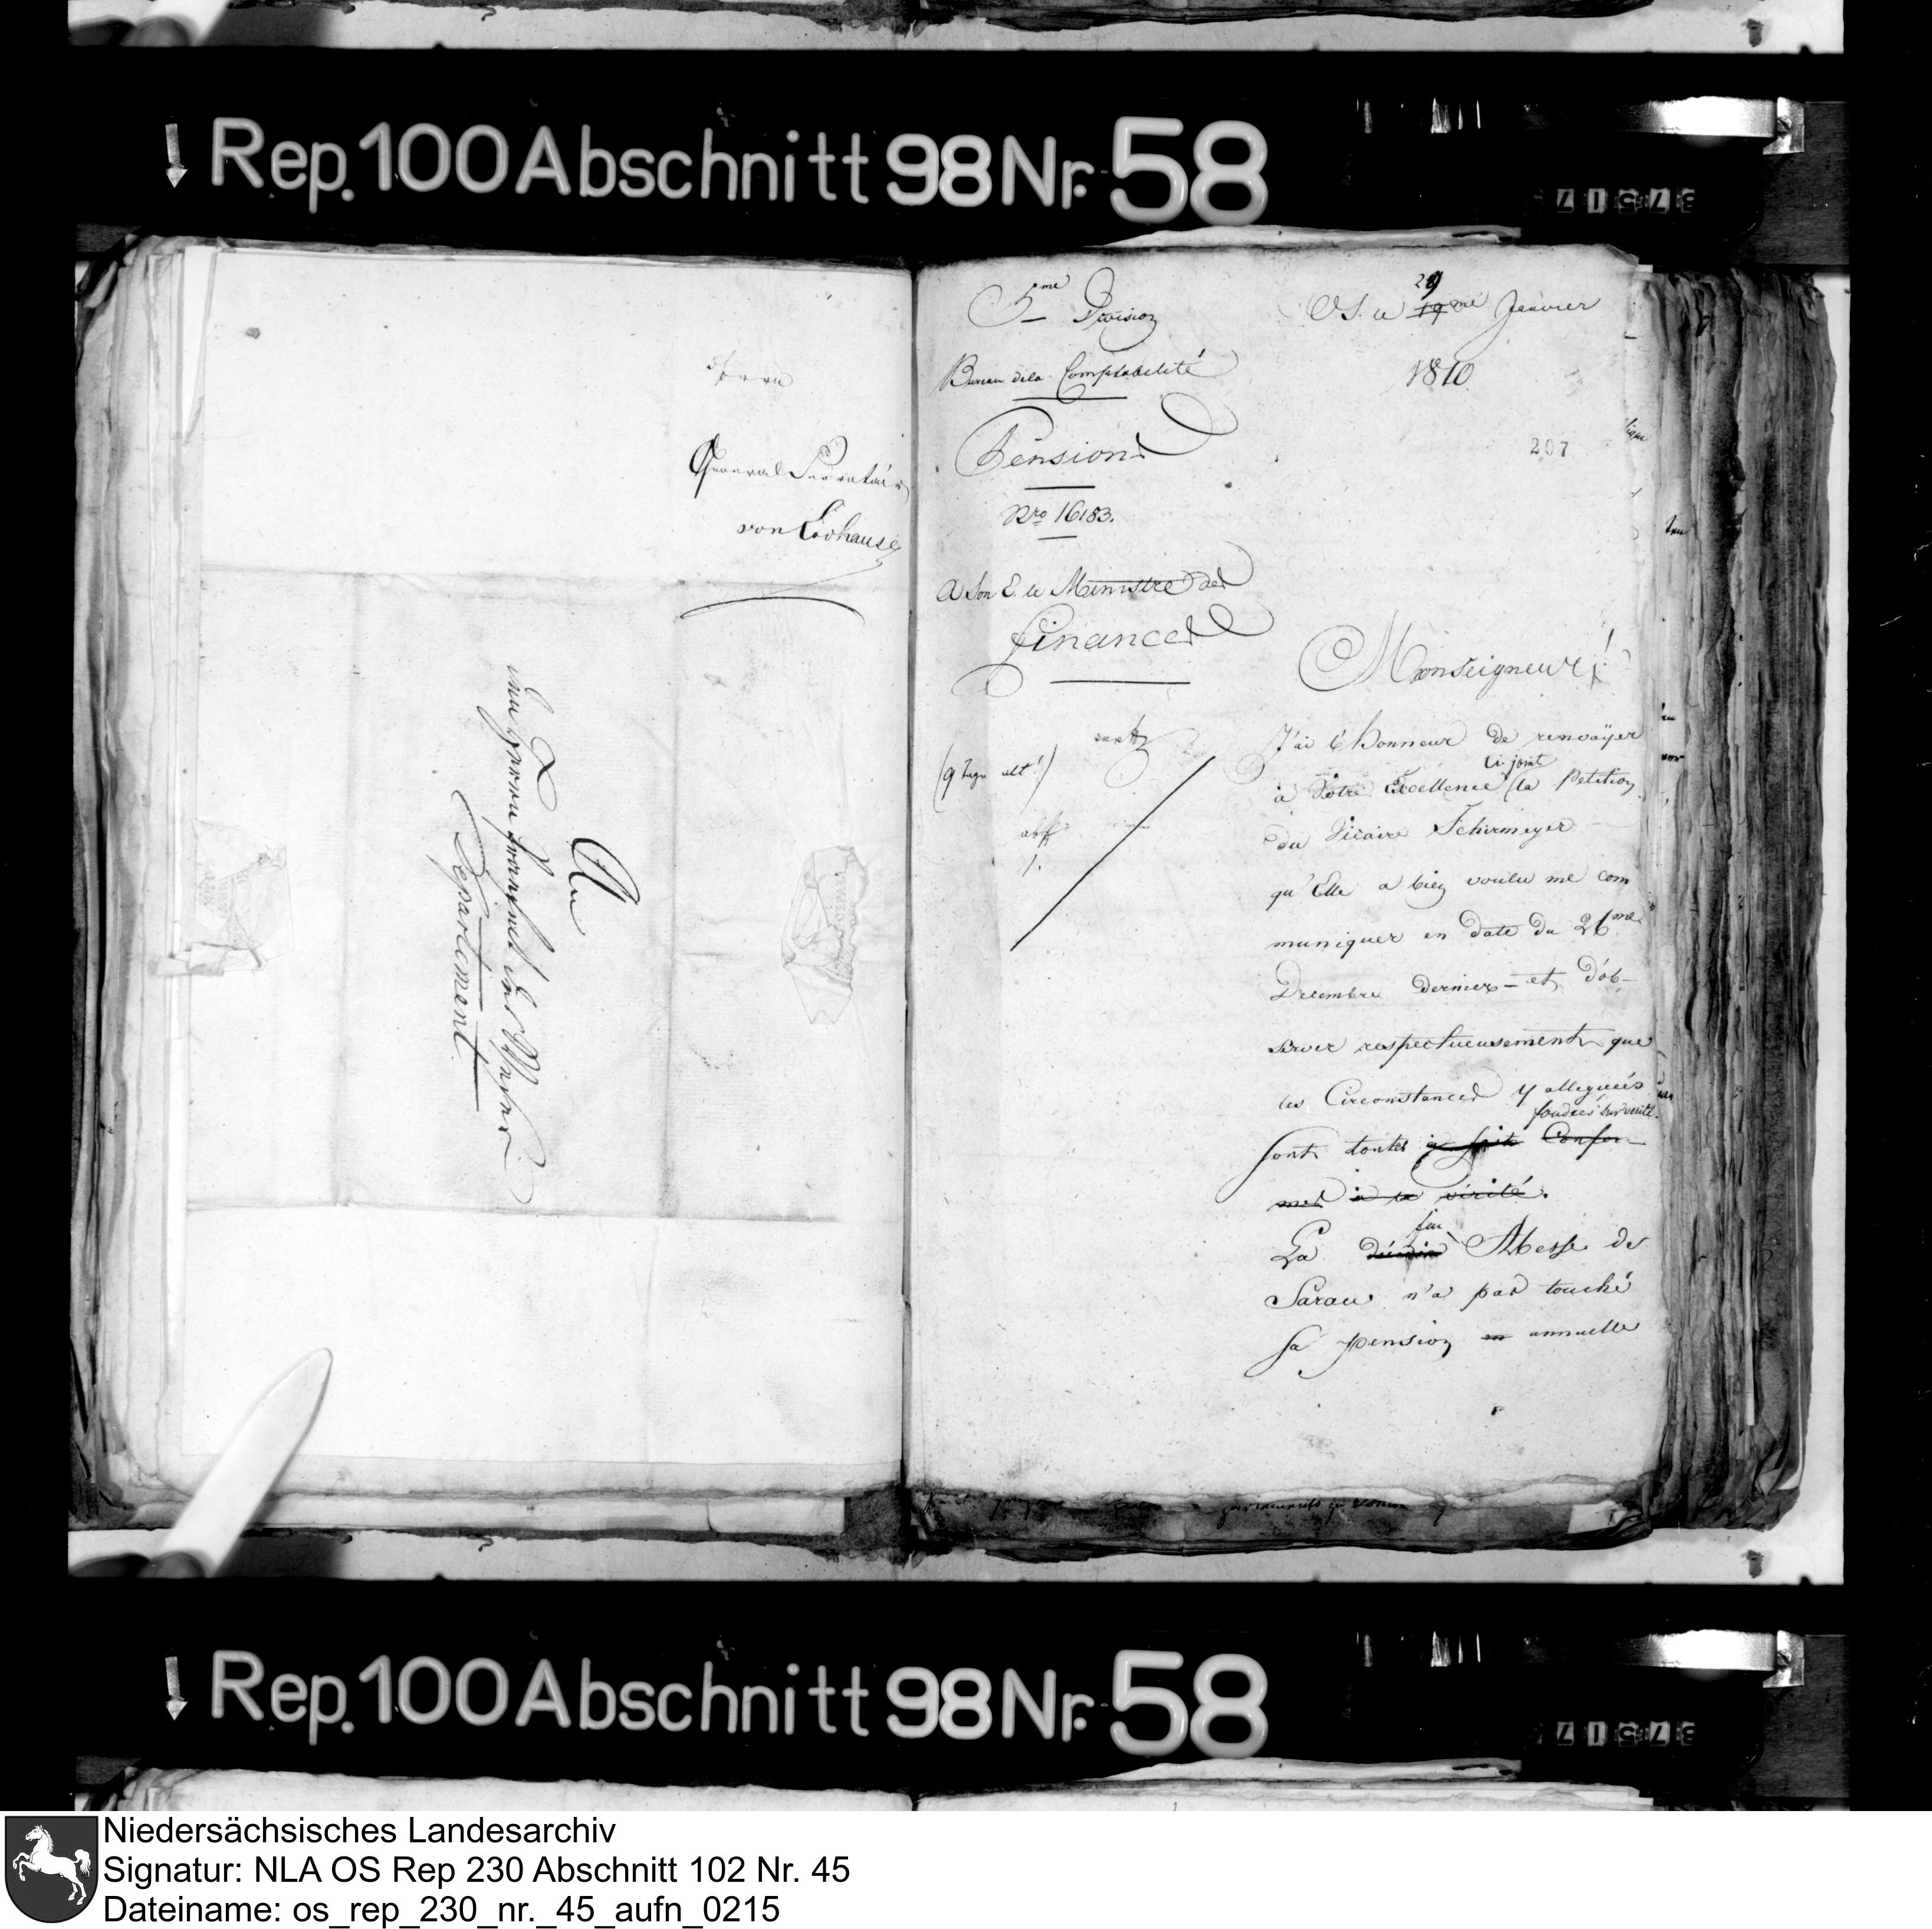 Rep. 100 Abschnitt 98 Nr. 58
37517
Herrn
General Secretair
von Lichhausen
An
den Herrn Präfect des Weser
Departement
5me Division
Bureau de la Comptabilité
Pensions
Nro 16183.
A Son E. le Ministre des
finances
OS. le 19me 29 Janvier
1810
207
Monseigneur!
J'ai l'honneur de renvoÿer
à Votre Excellence ci-joint la Petition
du Vicaire Schirmeyer
qu'Elle a bien voulu me com
muniquer en date du 26me
Decembre dernier et d'ob-
server respectueusement que
les Circonstances y alleguées
fondées sur verité.
sont toutes Confor-
mes à la vérité.
feu
La Abesse de
Sarau n'a pas touché
sa pension en annuelle
Rep. 100 Abschnitt 98 Nr. 58
37517
Niedersächsisches Landesarchiv
Signatur: NLA OS Rep 230 Abschnitt 102 Nr. 45
Dateiname: os_rep_230_nr._45_aufn_0215